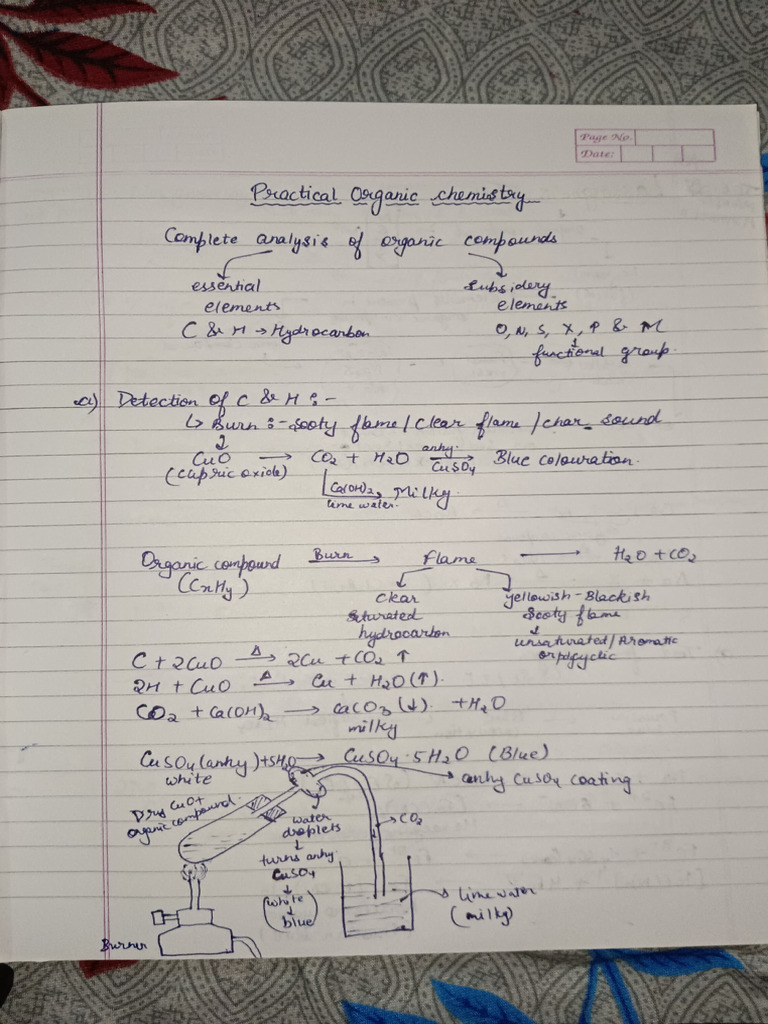 Page No.
Date:
Practical Organic chemistry
Complete analysis of organic compounds
essential elements
C & H → Hydrocarbon
Subsidery elements
O, N, S, X, P & M
↓
functional group.
a) Detection of C & H :-
↳ Burn :- Sooty flame / clear flame / char sound
↓
CuO (cupric oxide) → CO₂ + H₂O anhy. CuSO₄ → Blue colouration.
Ca(OH)₂ lime water. → Milky.
Organic compound (CxHy) Burn → flame → H₂O + CO₂
clear
saturated
hydrocarbon
yellowish - Blackish
Sooty flame
↓
unsaturated / Aromatic
C + 2CuO Δ→ 2Cu + CO₂ ↑
2H + CuO Δ→ Cu + H₂O (↑).
CO₂ + Ca(OH)₂ → CaCO₃ (↓) + H₂O
milky
CuSO₄ (anhy) + 5H₂O → CuSO₄·5H₂O (Blue)
white
→ anhy CuSO₄ coating
CuO +
organic compound.
water
droplets
↓
turns anhy.
CuSO₄
↓
(white
↓
blue)
→ CO₂
→ lime water
(milky)
Burner